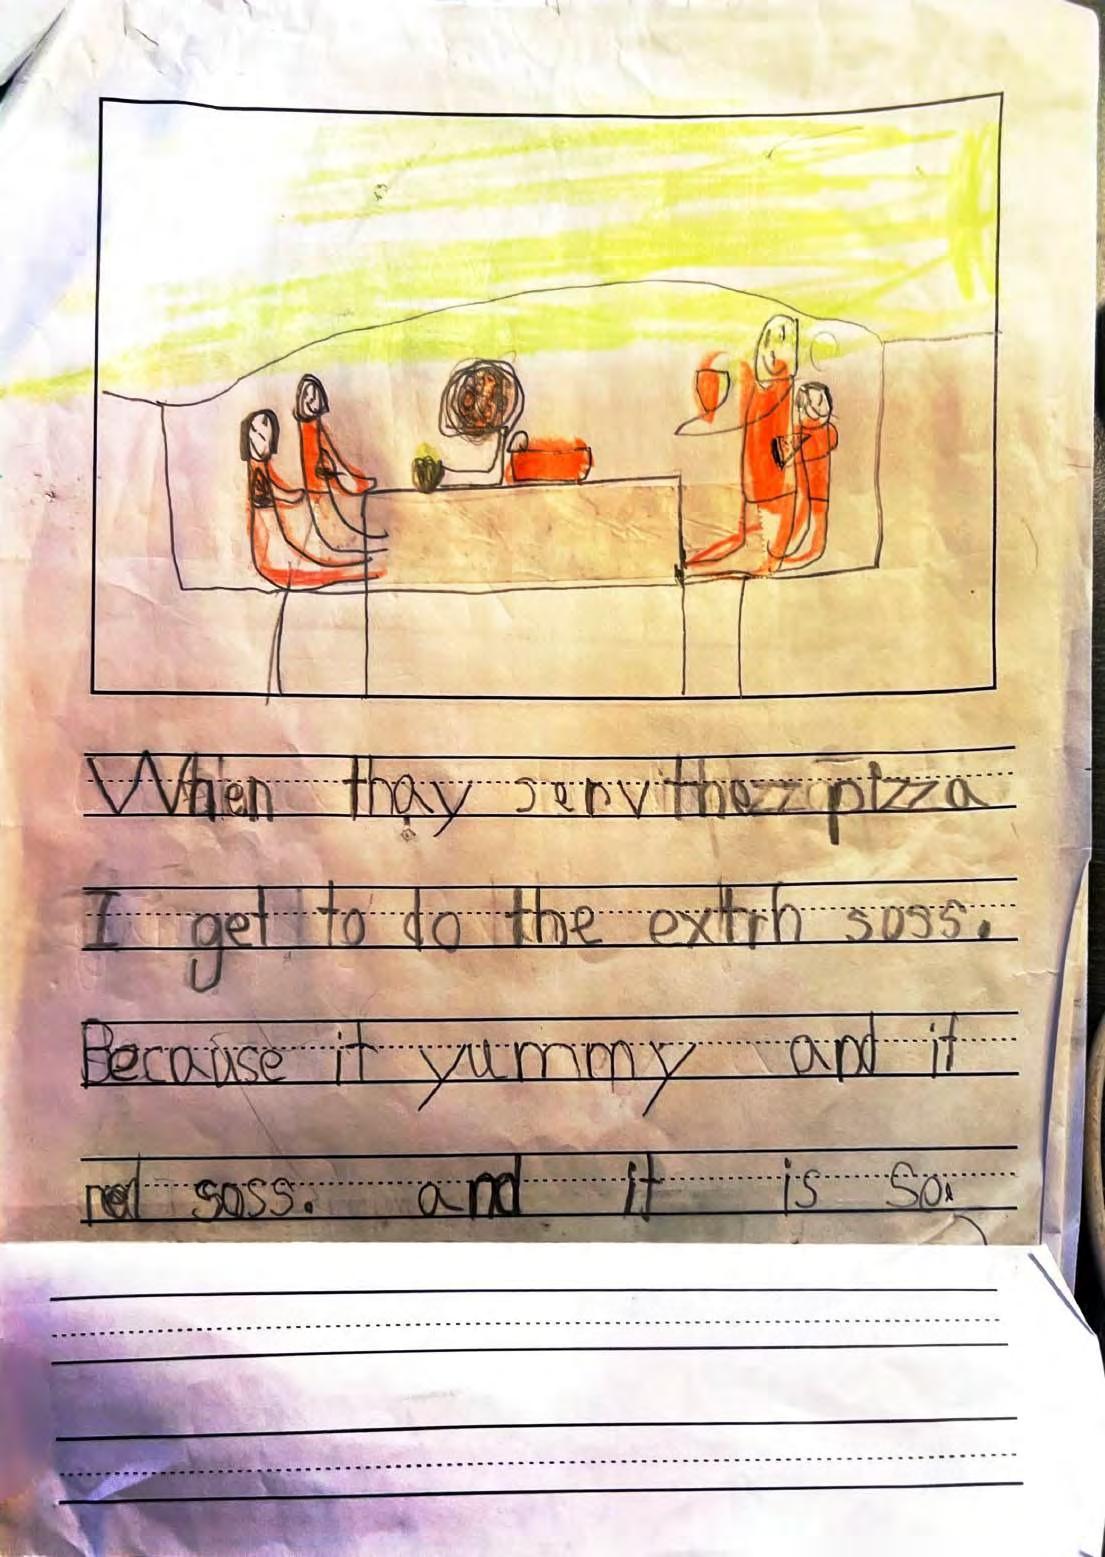 When thay serv the pizza
I get to do the extrh soss.
Because it yummy and it
red soss. and it is so.